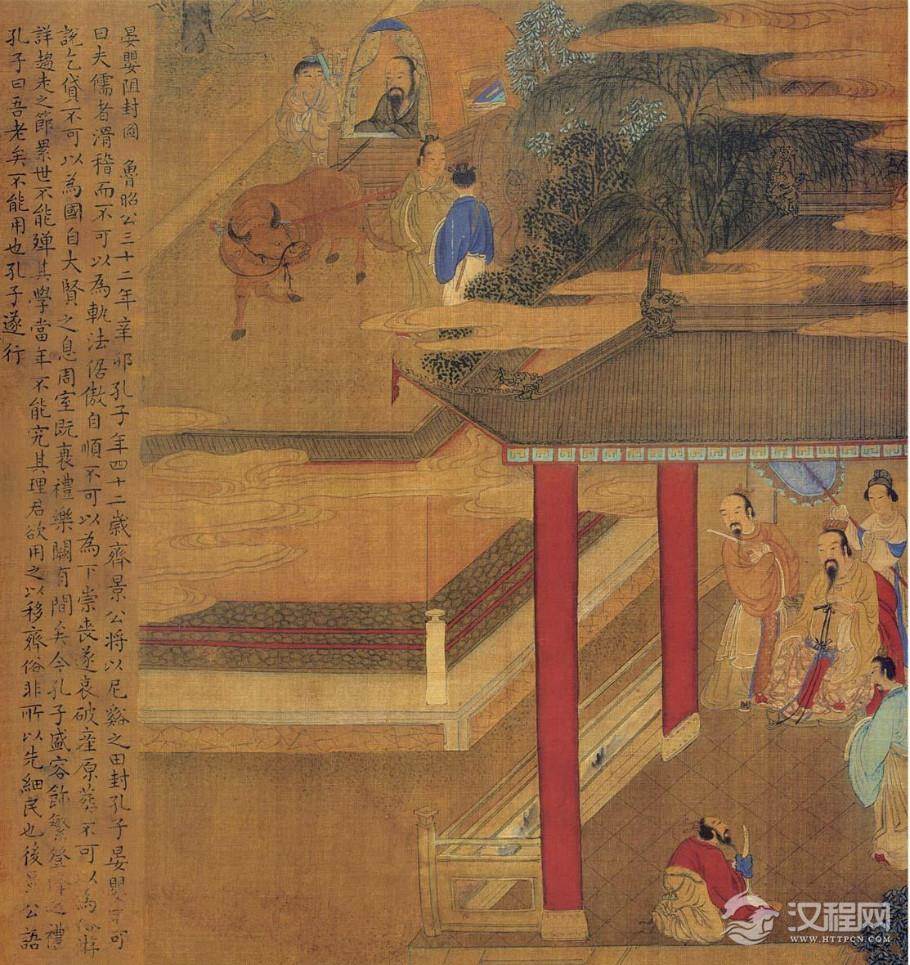 晏嬰阻封圖 魯昭公三十二年辛卯孔子年四十二歲齊景公将以尼谿之田封孔子晏嬰可
曰夫儒者滑稽而不可以為軌法倨傲自順不可以為下崇喪遂哀破産厚葬不可以為俗游
說乞貸不可以為國自大賢之息周室既衰禮樂闕有間矣今孔子盛容飾繁登降之禮
詳趨走之節累世不能殫其學當年不能究其理君欲用之以移齊俗非所以先細民也後景公語
孔子曰吾老矣不能用也孔子遂行
汉程网
WWW.HTTPCN.COM